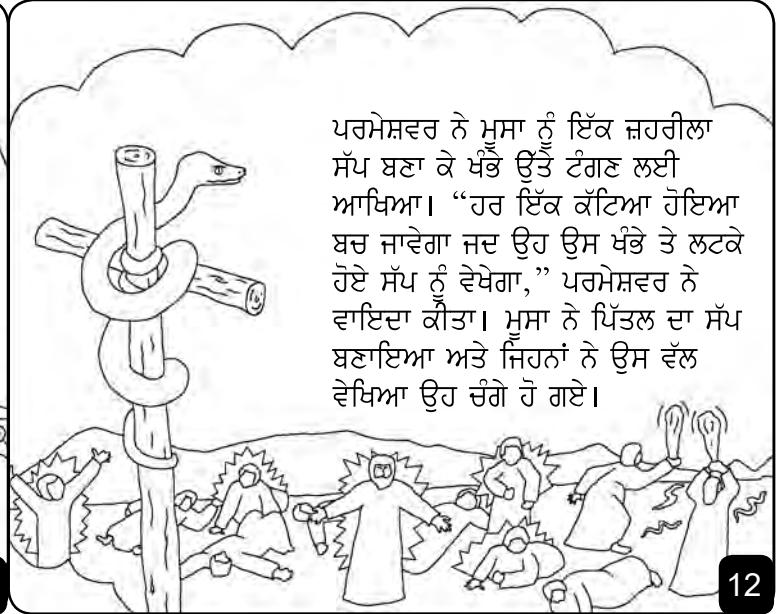 ਪਰਮੇਸ਼ਵਰ ਨੇ ਮੂਸਾ ਨੂੰ ਇੱਕ ਜ਼ਹਰੀਲਾ
ਸੱਪ ਬਣਾ ਕੇ ਖੰਭੇ ਉੱਤੇ ਟੰਗਣ ਲਈ
ਆਖਿਆ। “ਹਰ ਇੱਕ ਕੱਟਿਆ ਹੋਇਆ
ਬਚ ਜਾਵੇਗਾ ਜਦ ਉਹ ਉਸ ਖੰਭੇ ਤੇ ਲਟਕੇ
ਹੋਏ ਸੱਪ ਨੂੰ ਵੇਖੇਗਾ,” ਪਰਮੇਸ਼ਵਰ ਨੇ
ਵਾਇਦਾ ਕੀਤਾ। ਮੂਸਾ ਨੇ ਪਿੱਤਲ ਦਾ ਸੱਪ
ਬਣਾਇਆ ਅਤੇ ਜਿਹਨਾਂ ਨੇ ਉਸ ਵੱਲ
ਵੇਖਿਆ ਉਹ ਚੰਗੇ ਹੋ ਗਏ।
12